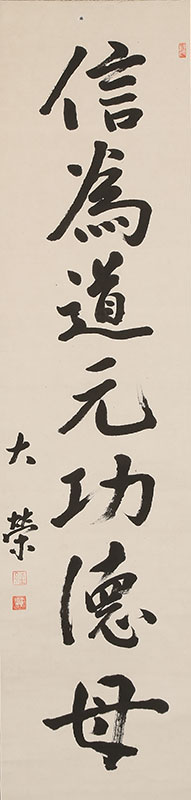 信為道元功德母
大榮